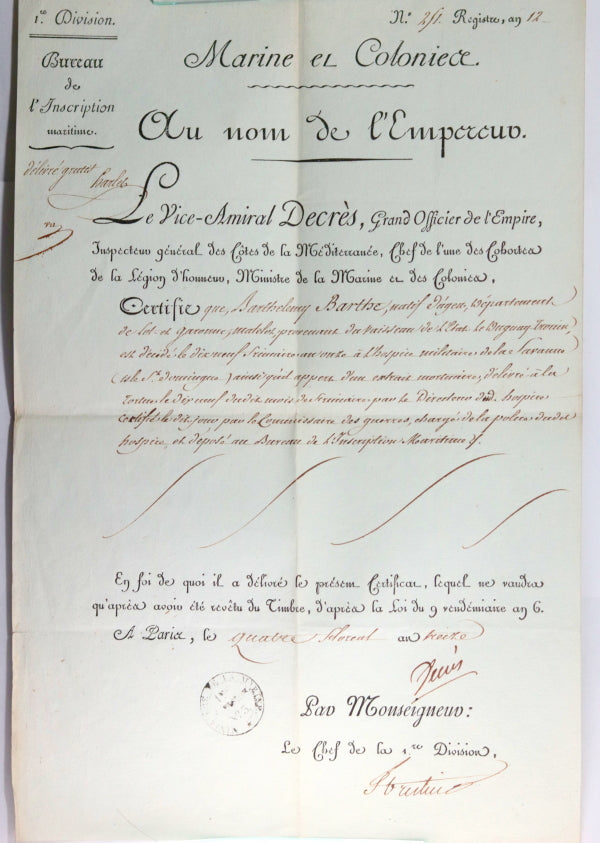 1.re Division.
N.o 251. Registre, an 12
Bureau
de
l'Inscription
maritime.
Marine et Colonies.
Au nom de l'Empereur.
délivré gratis
Le Vice-Amiral Decrès, Grand Officier de l'Empire,
Inspecteur général des Côtes de la Méditerranée, Chef de l'une des Cohortes
de la Légion d'honneur, Ministre de la Marine et des Colonies,
Certifie que, Barthelemy Barthe, natif d'agen, Département
de lot et garonne, matelot, provenant du vaisseau de l'Etat le Duguay Trouin,
est décédé le dix neuf frimaire an onze à l'hospice militaire de la Savanne
(isle St. domingue) ainsi qu'il appert d'un extrait mortuaire, délivré à la
tortue le dix neuf dudit mois de frimaire par le Directeur dud. hospice
certifié le dit jour par le Commissaire des guerres, chargé de la police dudit
hospice, et déposé au Bureau de l'Inscription Maritime
En foi de quoi il a délivré le présent Certificat, lequel ne vaudra
qu'après avoir été revêtu du Timbre, d'après la Loi du 9 vendémiaire an 6.
A Paris, le quatre floreal an treize
Decrès
Par Monseigneur:
Le Chef de la 1.re Division,